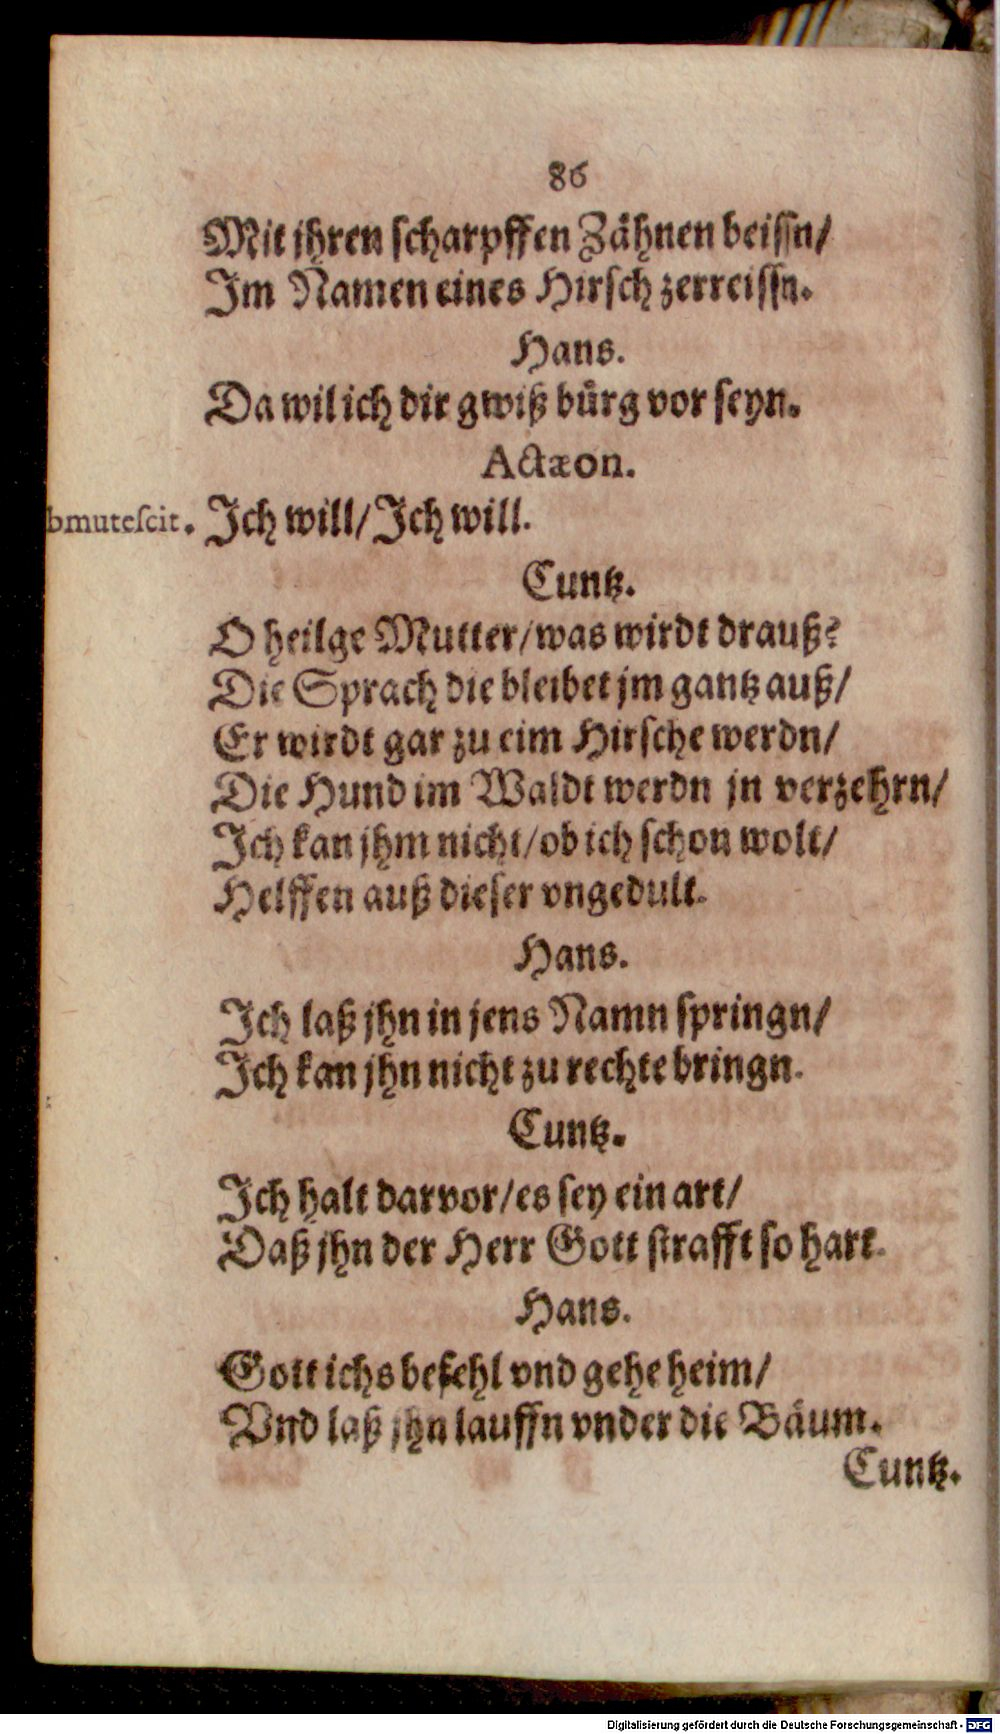 86
Mit jhren scharpffen Zähnen beissn/
Im Namen eines Hirsch zerreissn.
Hans.
Da wil ich dir gwiß bürg vor seyn.
Actæon.
bmutescit. Ich will/ Ich will.
Cuntz.
O heilge Mutter/ was wirdt drauß?
Die Sprach die bleibet jm gantz auß/
Er wirdt gar zu eim Hirsche werdn/
Die Hund im Waldt werdn jn verzehrn/
Ich kan jhm nicht/ ob ich schon wolt/
Helffen auß dieser vngedult.
Hans.
Ich laß jhn in jens Namn springn/
Ich kan jhn nicht zu rechte bringn.
Cuntz.
Ich halt darvor/ es sey ein art/
Daß jhn der Herr Gott strafft so hart.
Hans.
Gott ichs befehl vnd gehe heim/
Vnd laß jhn lauffn vnder die Bäum.
Cuntz.
Digitalisierung gefördert durch die Deutsche Forschungsgemeinschaft - DFG